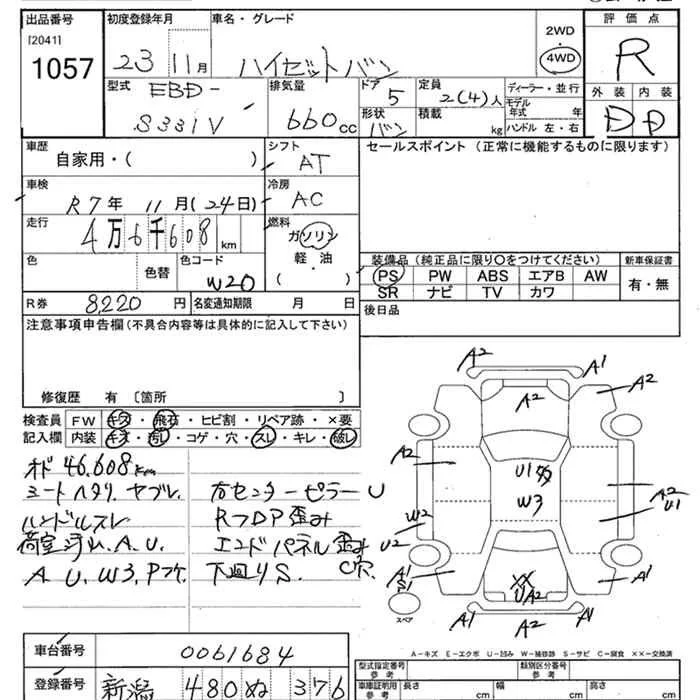 出品番号 初度登録年月 車名・グレード 評価点
[2041] 2WD
1057 23 11月 ハイゼットバン 4WD R
型式 排気量 ドア 定員 ディーラー・並行 外装 内装
EBD- 5 2(4)人 モデル年式 年 D D
S331V 660cc 形状 バン 積載 kg ハンドル 左・右
車歴 シフト セールスポイント(正常に機能するものに限ります)
自家用・( ) AT
車検 冷房
R7年 11月(24日) AC
走行 燃料
4万6千608km ガソリン
色 色替 色コード 軽・油 装備品(純正品に限り○をつけてください) 新車保証書
W20 ( ) PS PW ABS エアB AW 有・無
SR ナビ TV カワ
R券 8,220円 名変通知期限 月 日 後日品
注意事項申告欄(不具合内容等は具体的に記入して下さい)
修復歴 有 〔箇所 〕
検査員 FW キズ・飛石・ヒビ割・リペア跡・×要
記入欄 内装 キズ・汚し・コゲ・穴・スレ・キレ・破レ
オド 46,608km
シートヘタリ.ヤブレ. 右センターピラーU
ハンドルスレ Rフロア歪み
荷室汚れ.A.U. エンドパネル歪み
A.U.W3.Pツケ. 下廻りS. C.R.
A2 A1
A2 A2
A2 U1 W3 A2 U1
W2
U2
A1 S1 XX UA2 A1
スペア A1 A2 A1
A-キズ E-エクボ U-凹み W-補修跡 S-サビ C-腐食 ××-交換済
車台番号 0061684
型式指定番号 参考 類別区分番号 参考
登録番号 新潟 480 ぬ 376
車庫証明用 参考 長さ cm 幅 cm 高さ cm